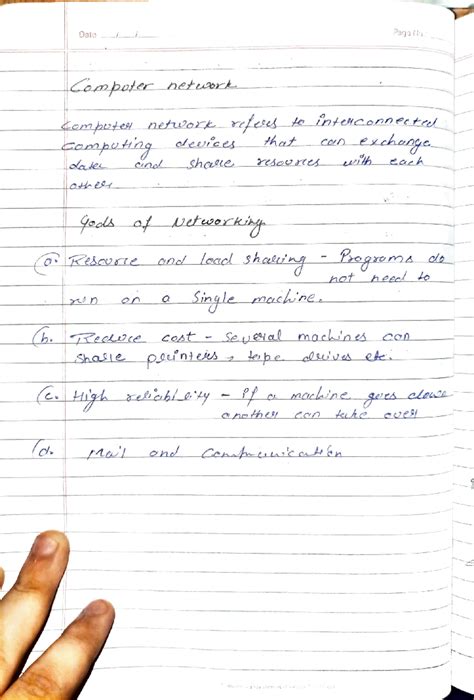 Date / /
Page No.
Computer network
Computer network refers to interconnected
Computing devices that can exchange
data and share resources with each
other
Gods of Networking
(a. Resource and load sharing - Programs do
not need to
run on a single machine.
(b. Reduce cost - Several machines can
share printers, tape drives etc.
(c. High reliability - if a machine goes down
another can take over
(d. Mail and Communication